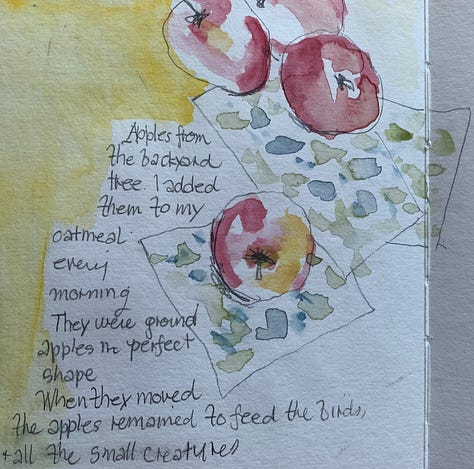 Apples from
the backyard
tree. I added
them to my
oatmeal
every
morning
They were ground
apples in perfect
shape
When they moved
the apples remained to feed the birds,
+ all the small creatures